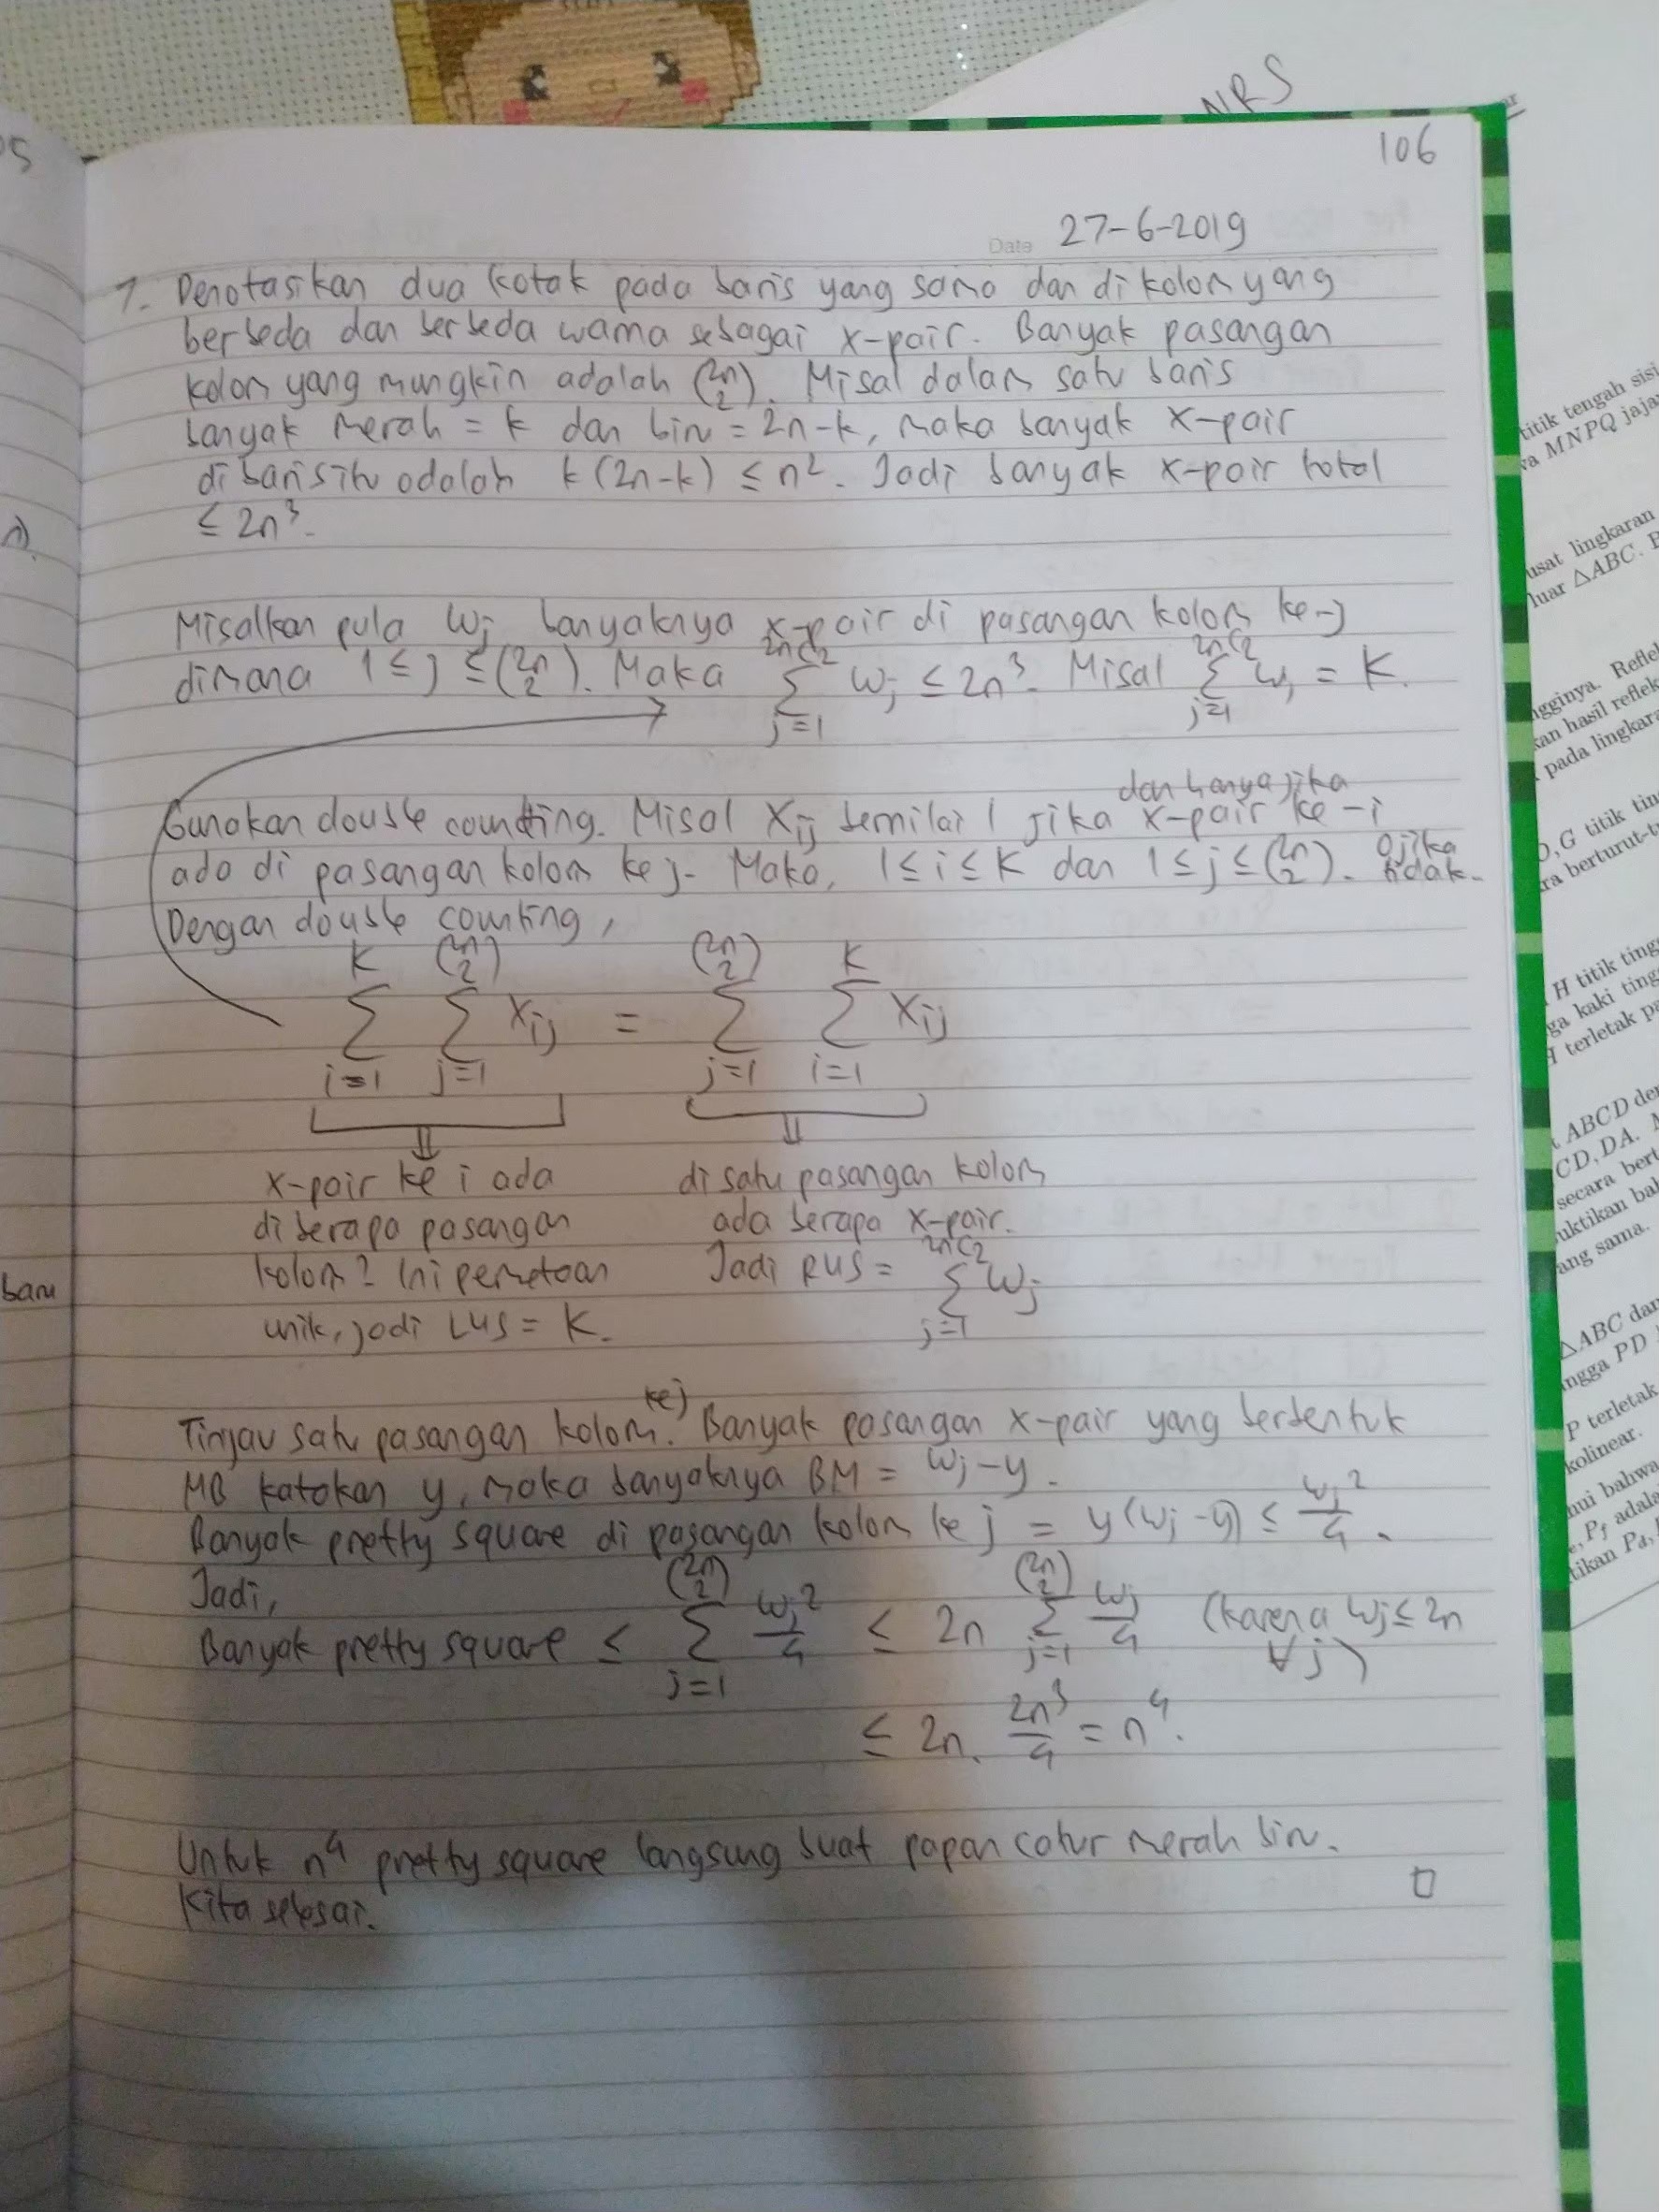 NRS
106
Date 27-6-2019
1. Denotasikan dua kotak pada baris yang sama dan di kolom yang
berbeda dan berbeda warna sebagai x-pair. Banyak pasangan
kolom yang mungkin adalah (2n 2). Misal dalam satu baris
banyak merah = k dan biru = 2n-k, maka banyak x-pair
di baris itu adalah k(2n-k) ≤ n². Jadi banyak x-pair total
≤ 2n³.
Misalkan pula Wj banyaknya x-pair di pasangan kolom ke-j
dimana 1 ≤ j ≤ (2n 2). Maka 2nC2 Σ j=1 Wj ≤ 2n³. Misal 2nC2 Σ j=1 Wj = K.
Gunakan double counting. Misal Xij bernilai 1 jika dan hanya jika x-pair ke-i
ada di pasangan kolom ke j. Maka, 1 ≤ i ≤ K dan 1 ≤ j ≤ (2n 2). 0 jika tidak.
Dengan double counting,
K Σ i=1 (2n 2) Σ j=1 Xij = (2n 2) Σ j=1 K Σ i=1 Xij
x-pair ke i ada
di berapa pasangan
kolom? Ini pemetaan
unik, jadi LHS = K.
di satu pasangan kolom
ada berapa x-pair.
Jadi RHS = 2nC2 Σ j=1 Wj
Tinjau satu pasangan kolom ke j. Banyak pasangan x-pair yang berbentuk
MB katakan y, maka banyaknya BM = Wj - y.
Banyak pretty square di pasangan kolom ke j = y(Wj - y) ≤ Wj²/4.
Jadi,
Banyak pretty square ≤ (2n 2) Σ j=1 Wj²/4 ≤ 2n (2n 2) Σ j=1 Wj/4 (karena Wj ≤ 2n ∀j)
≤ 2n. 2n³/4 = n⁴.
Untuk n⁴ pretty square langsung buat papan catur merah biru.
Kita selesai. □
baru
titik tengah sisi
MNPQ jaja
usat lingkaran
luar △ABC.
ngginya.
kan hasil reflek
pada lingkara
G titik
berturut-t
H titik ting
ga kaki ting
terletak
ABCD
CD, DA.
secara bert
uktikan bah
ang sama.
△ABC dan
ngga PD
P terletak
kolinear.
nui bahwa
Pf adala
tikan Pd,